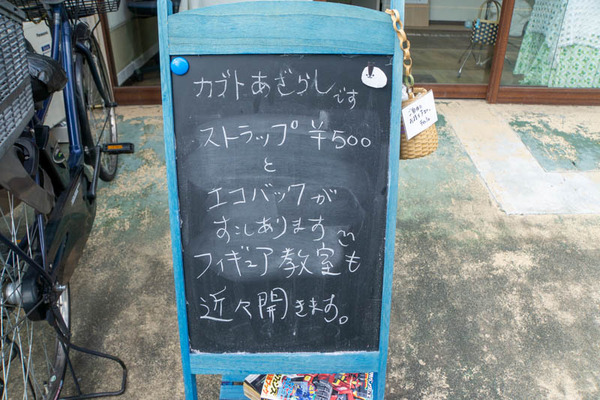 カゴトあざらしです
ストラップ ¥500
と
エコバックが
すこしあります
フィギュア教室も
近々開きます。